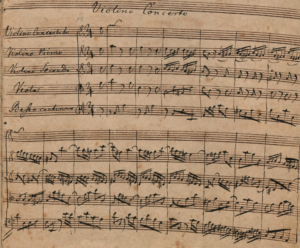 Violino Concerto
Violino Concertato
Violino Primo
Violino Secondo
Viola
Basso continuo